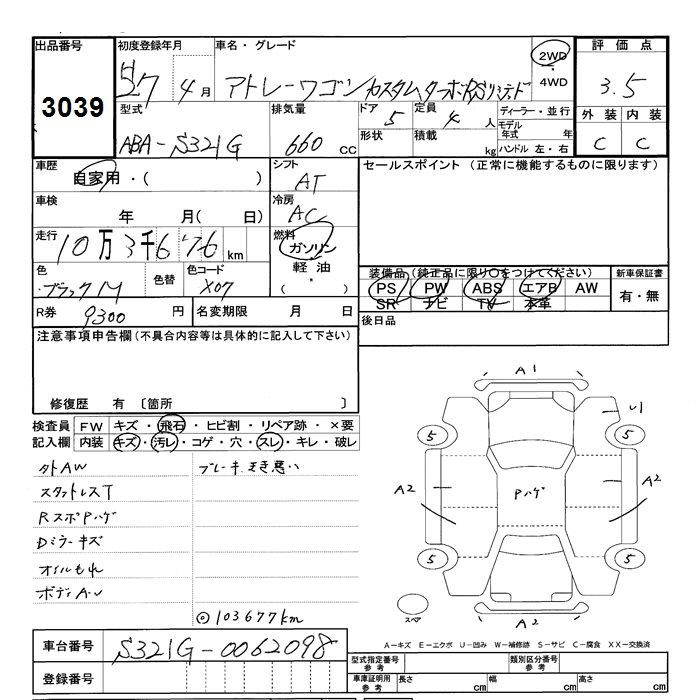 出品番号 初度登録年月 車名・グレード 2WD 評価点
3039 年 4月 アトレーワゴン カスタムターボRSリミテッド ・4WD 3.5
型式 排気量 ドア 定員 ディーラー・並行 外装 内装
ABA-S321G 660 CC 5 4 人 モデル年式 年 C C
形状 積載 kg ハンドル 左・右
車歴 自家用・( ) シフト AT セールスポイント(正常に機能するものに限ります)
車検 年 月( 日) 冷房 AC
走行 10万3千676 km 燃料 ガソリン
軽油
( ・ )
色 ブラックM 色替 色コード X07 装備品(純正品に限り○をつけてください) 新車保証書
PS PW ABS エアB AW 有・無
SR ナビ TV 本革
R券 9300 円 名変期限 月 日 後日品
注意事項申告欄(不具合内容等は具体的に記入して下さい)
修復歴 有 〔箇所 〕
検査員 FW キズ・飛石・ヒビ割・リペア跡・×要
記入欄 内装 キズ・汚レ・コゲ・穴・スレ・キレ・破レ
外AW ブレーキ
スタットレスT
RスポPハゲ
Dミラーキズ
オイルもれ
◎103677km
A1
U1
5 5
A2 Pハゲ A2
5 5
スペア A2
A-キズ E-エクボ U-凹み W-補修跡 S-サビ C-腐食 XX-交換済
車台番号 S321G-0062098
型式指定番号 参考 類別区分番号 参考
登録番号 車庫証明用 参考 長さ cm 幅 cm 高さ cm